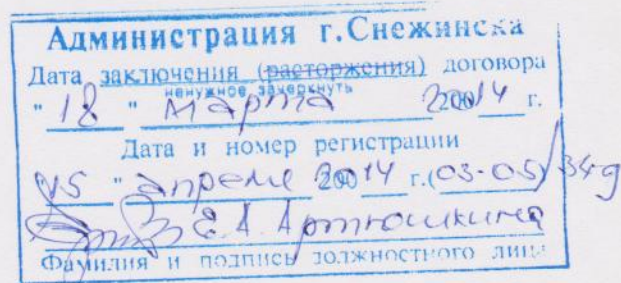 Администрация г.Снежинска
Дата заключения (расторжения) договора
ненужное зачеркнуть
"18" марта 2014 г.
Дата и номер регистрации
"15" апреля 2014 г. (03-05)/34д
Е.А. Артюшкина
Фамилия и подпись должностного лица